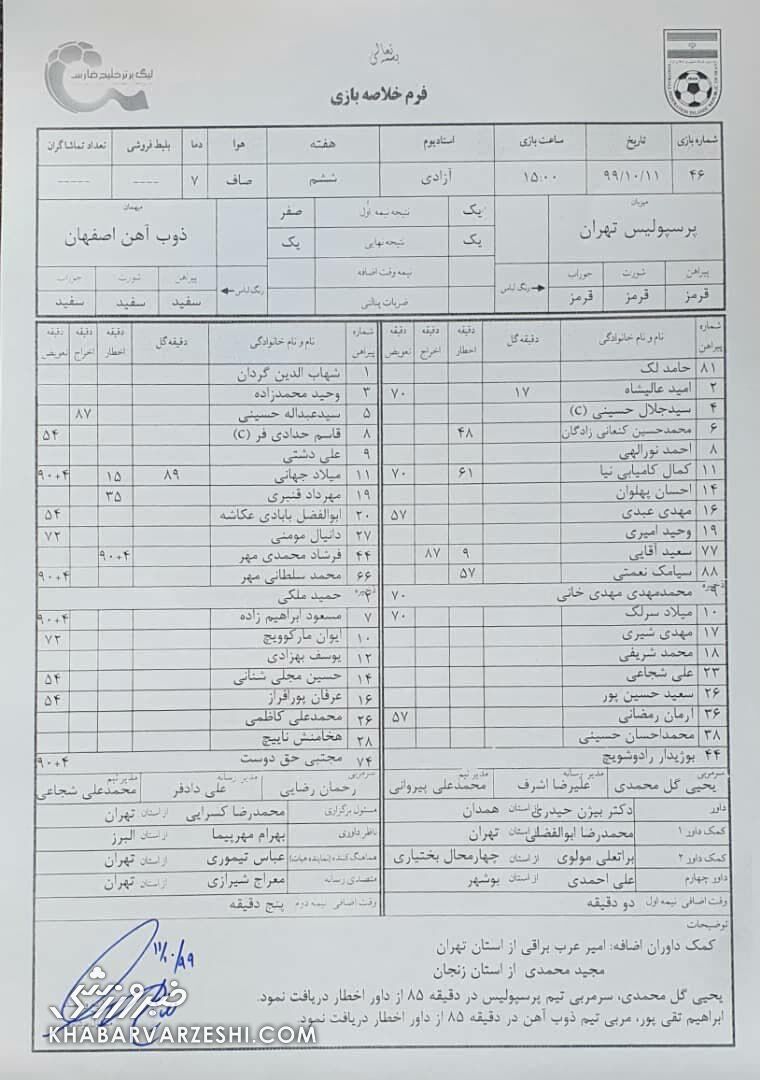 بسمه تعالی
لیگ برتر خلیج فارس
فرم خلاصه بازی
شماره بازی تاریخ ساعت بازی استادیوم هفته هوا دما بلیط فروشی تعداد تماشاگران
۴۶ ۹۹/۱۰/۱۱ ۱۵:۰۰ آزادی ششم صاف ۷ ---- -----
میزبان
پرسپولیس تهران
پیراهن شورت جوراب
قرمز قرمز قرمز
رنگ لباس
یک نتیجه نیمه اول صفر
یک نتیجه نهایی یک
نیمه وقت اضافه
ضربات پنالتی
میهمان
ذوب آهن اصفهان
رنگ لباس
پیراهن شورت جوراب
سفید سفید سفید
شماره پیراهن نام و نام خانوادگی دقیقه گل دقیقه اخطار دقیقه اخراج دقیقه تعویض
۸۱ حامد لک
۲ امید عالیشاه ۱۷ ۷۰
۴ سیدجلال حسینی (C)
۶ محمدحسین کنعانی زادگان ۴۸
۸ احمد نورالهی
۱۱ کمال کامیابی نیا ۶۱ ۷۰
۱۴ احسان پهلوان
۱۶ مهدی عبدی ۵۷
۱۹ وحید امیری
۷۷ سعید آقایی ۹ ۸۷
۸۸ سیامک نعمتی ۵۷
ذخیره
۹ محمدمهدی مهدی خانی ۷۰
۱۰ میلاد سرلک ۷۰
۱۷ مهدی شیری
۱۸ محمد شریفی
۲۳ علی شجاعی
۲۶ سعید حسین پور
۳۶ آرمان رمضانی ۵۷
۳۸ محمداحسان حسینی
۴۴ بوژیدار رادوشویچ
سرمربی یحیی گل محمدی مدیر رسانه علیرضا اشرف مدیر تیم محمدعلی پیروانی
داور دکتر بیژن حیدری از استان همدان
کمک داور ۱ محمدرضا ابوالفضلی از استان تهران
کمک داور ۲ براتعلی مولوی از استان چهارمحال بختیاری
داور چهارم علی احمدی از استان بوشهر
وقت اضافی نیمه اول دو دقیقه
شماره پیراهن نام و نام خانوادگی دقیقه گل دقیقه اخطار دقیقه اخراج دقیقه تعویض
۱ شهاب الدین گردان
۳ وحید محمدزاده
۵ سیدعبداله حسینی ۸۷
۸ قاسم حدادی فر (C) ۵۴
۹ علی دشتی
۱۱ میلاد جهانی ۸۹ ۱۵ ۹۰+۴
۱۹ مهرداد قنبری ۳۵
۲۰ ابوالفضل بابادی عکاشه ۵۴
۲۷ دانیال مومنی ۷۲
۴۴ فرشاد محمدی مهر ۹۰+۴
۶۶ محمد سلطانی مهر ۹۰+۴
ذخیره
۲ حمید ملکی
۷ مسعود ابراهیم زاده ۹۰+۴
۱۰ ایوان مارکوویچ ۷۲
۱۲ یوسف بهزادی
۱۴ حسین مجلی شنانی ۵۴
۱۶ عرفان پورافراز ۵۴
۲۶ محمدعلی کاظمی
۲۸ هخامنش نایبچ
۷۴ مجتبی حق دوست ۹۰+۴
سرمربی رحمان رضایی مدیر رسانه علی دادفر مدیر تیم محمدعلی شجاعی
مسئول برگزاری محمدرضا کسرایی از استان تهران
ناظر داوری بهرام مهرپیما از استان البرز
هماهنگ کننده (نماینده هیات) عباس تیموری از استان تهران
متصدی رسانه معراج شیرازی از استان تهران
وقت اضافی نیمه دوم پنج دقیقه
توضیحات
کمک داوران اضافه: امیر عرب براقی از استان تهران
مجید محمدی از استان زنجان
یحیی گل محمدی، سرمربی تیم پرسپولیس در دقیقه ۸۵ از داور اخطار دریافت نمود.
ابراهیم تقی پور، مربی تیم ذوب آهن در دقیقه ۸۵ از داور اخطار دریافت نمود.
۱۱/۱۰/۹۹
خبرورزشی
KHABARVARZESHI.COM